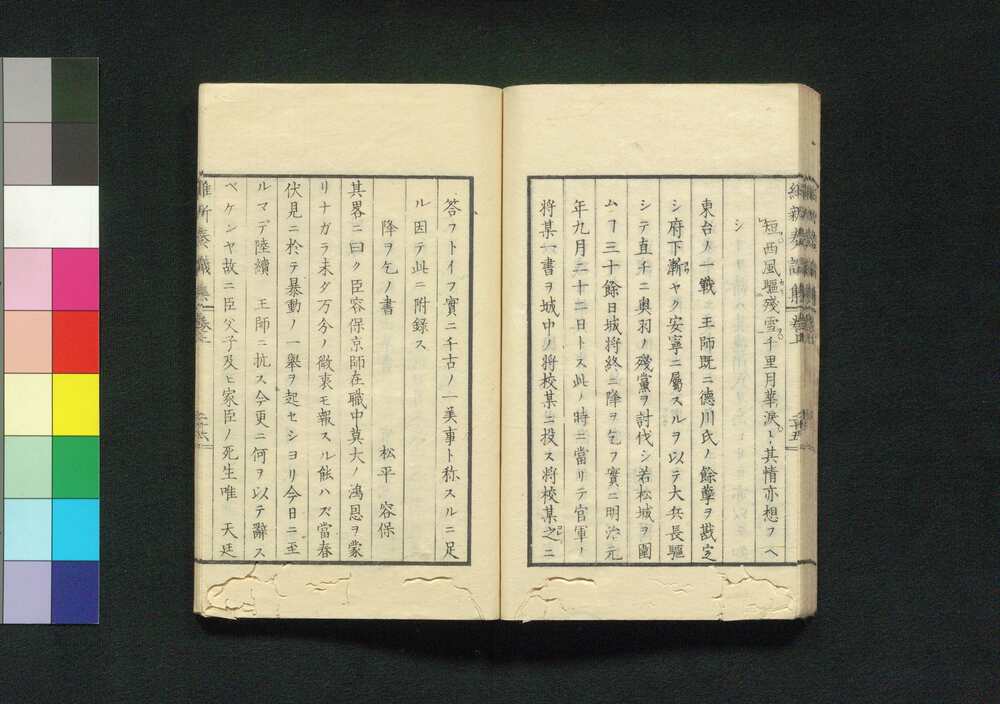 維新奏議集 巻四 二十五
短西風驅殘雪千里月華涙ト其情亦想フヘ
シ
東台ノ一戰 王師既ニ德川氏ノ餘孽ヲ戡定
シ府下漸ヤク安寧ニ屬スルヲ以テ大兵長驅
シテ直チニ奥羽ノ殘黨ヲ討伐シ若松城ヲ圍
ムヿ三十餘日城將終ニ降ヲ乞フ實ニ明治元
年九月二十二日トス此ノ時ニ當リテ官軍ノ
將某一書ヲ城中ノ將校某ニ投ス將校某之ニ
答フトイフ實ニ千古ノ一美事ト称スルニ足
ル因テ此ニ附録ス
降ヲ乞ノ書 松平 容保
其畧ニ曰ク臣容保京師在職中莫大ノ鴻恩ヲ蒙
リナガラ未タ万分ノ微衷モ報スル能ハズ當春
伏見ニ於テ暴動ノ一擧ヲ起セシヨリ今日ニ至
ルマデ陸續 王師ニ抗ス今更ニ何ヲ以テ辭ス
ベケンヤ故ニ臣父子及ヒ家臣ノ死生唯 天廷